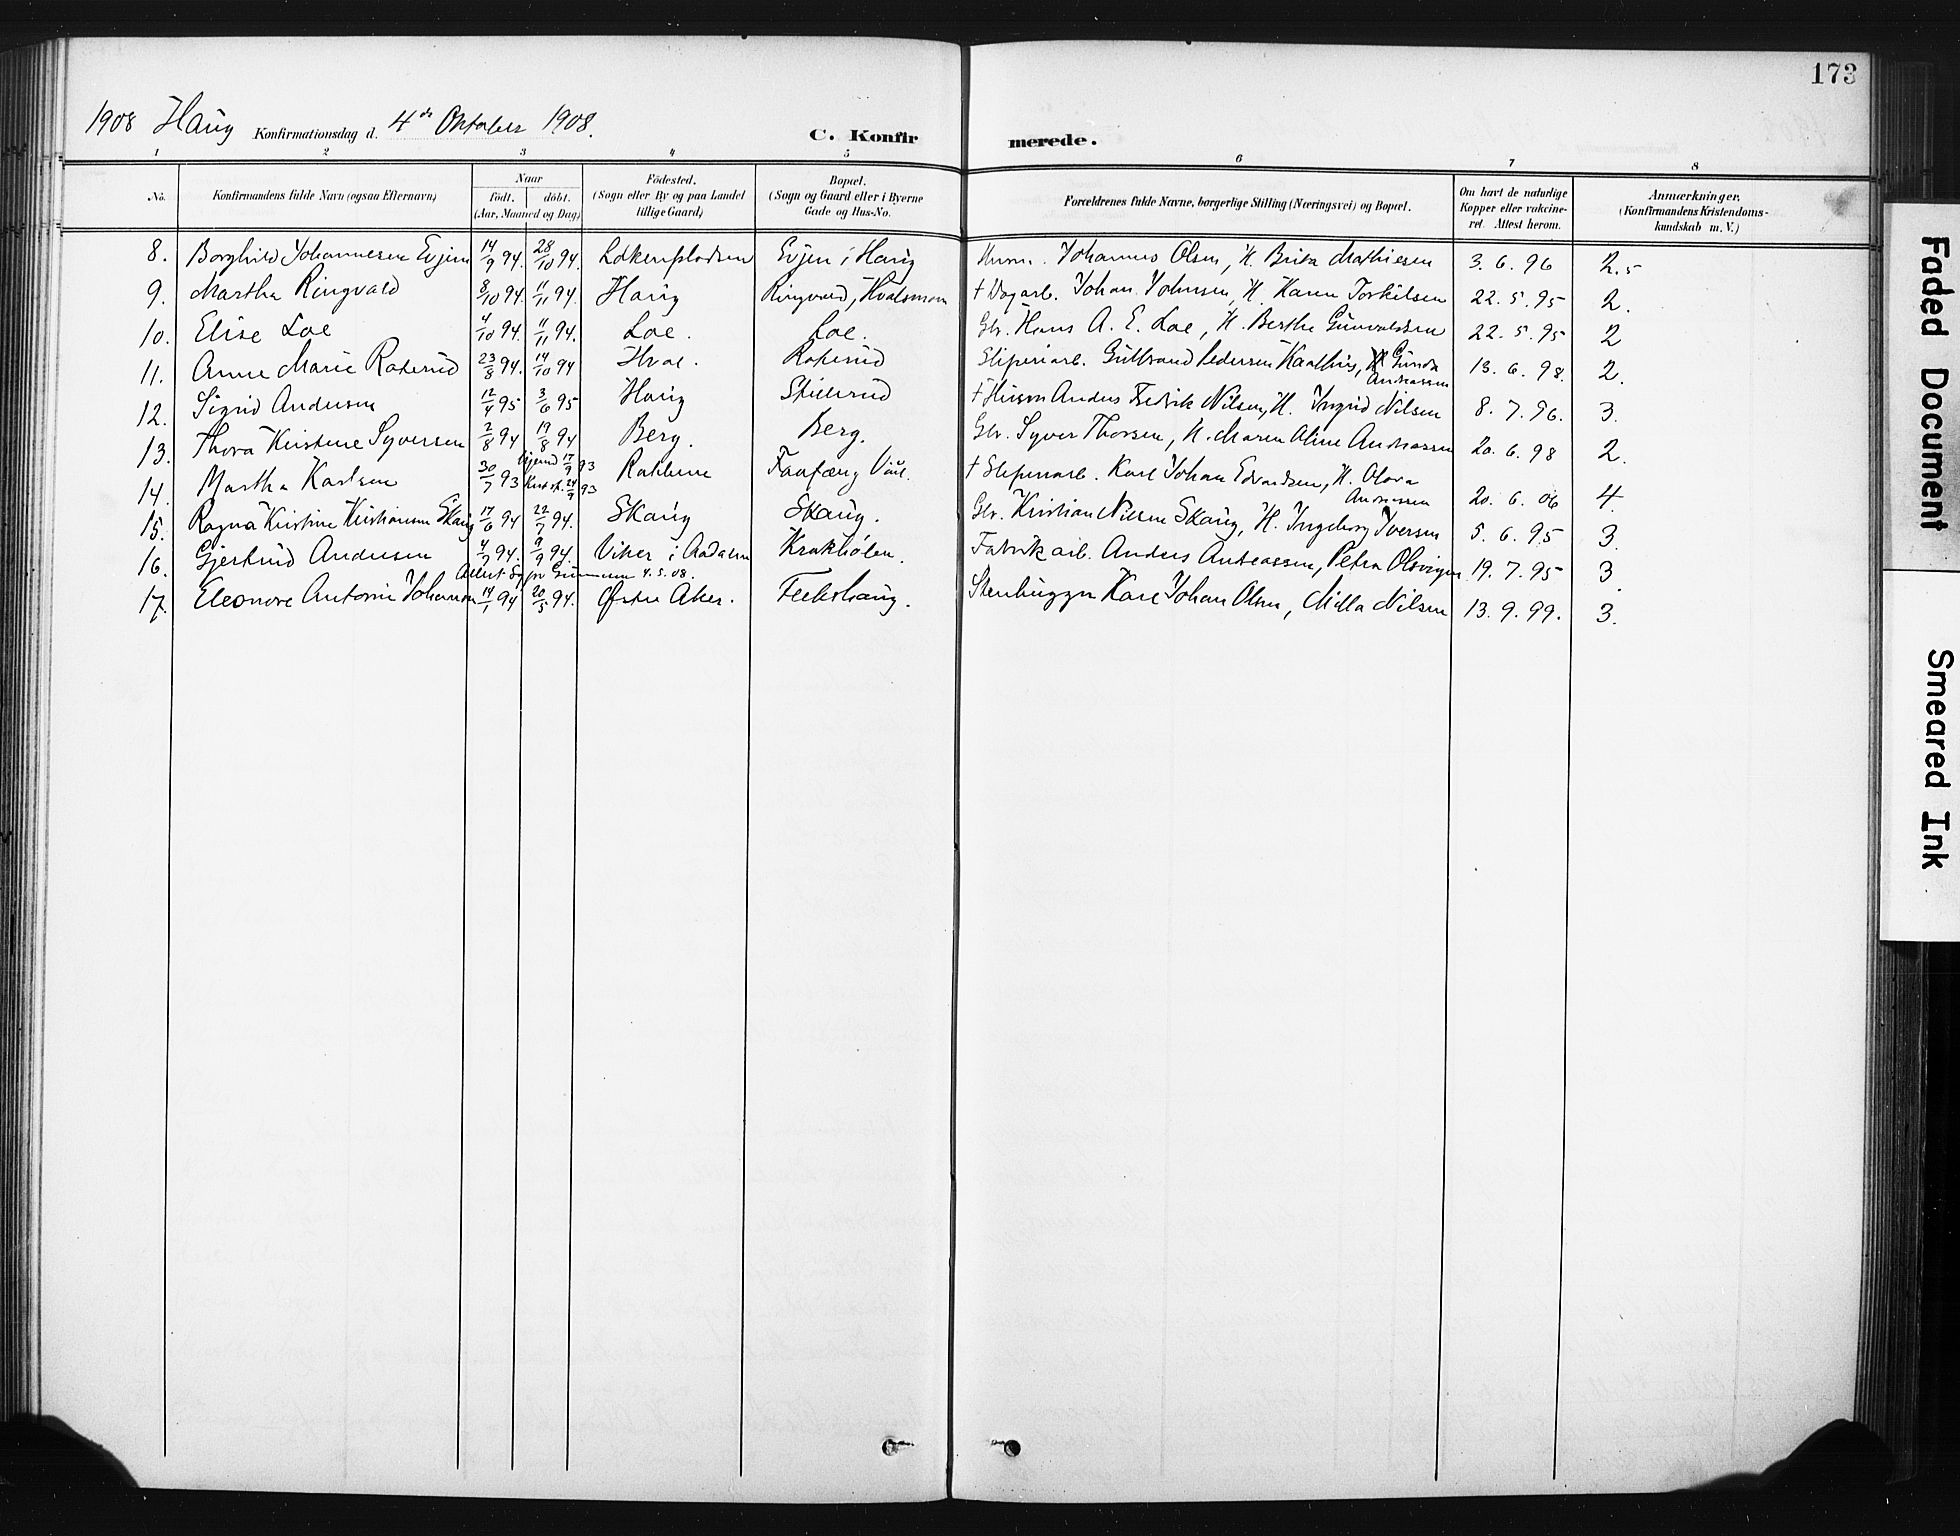 173
1908 Haug Konfirmationsdag d. 4de Oktober 1908. C. Konfirmerede.
1 2 3 4 5 6 7 8
No. Konfirmandens fulde Navn (ogsaa Efternavn) Naar født. døbt. (Aar, Maaned og Dag) Fødested. (Sogn eller By og paa Landet tillige Gaard) Bopæl. (Sogn og Gaard eller i Byerne Gade og Hus-No. Forældrenes fulde Navne, borgerlige Stilling (Næringsvei) og Bopæl. Om havt de naturlige Kopper eller vakcineret. Attest herom. Anmærkninger. (Konfirmandens Kristendomskundskab m. V.)
8. Borghild Johannesen Evjen 14/9 94. 28/10 94. Løkenpladsen Evjen i Haug Husm. Johannes Olsen, H. Brita Mathiesen 3. 6. 96 2.5
9. Martha Ringvald 8/10 94. 11/11 94. Haug Ringvald, Hvalsmoen † Dagarb. Johan Johnsen, H. Karen Torkilsen 22. 5. 95 2.
10. Elise Loe 4/10 94. 11/11 94. Loe. Loe. Gbr. Hans A. E. Loe, H. Berthe Gunvaldsen 22. 5. 95 2
11. Anne Marie Roterud 23/8 94. 14/10 94 Hval. Roterud Sliperiarb. Gulbrand Pedersen, H. Gunda Andreassen 13. 6. 98. 2.
12. Sigrid Andersen 12/4 95 3/6 95 Haug † Husm Anders Fredrik Nilsen, H. Ingrid Nilsen 8. 7. 96. 3.
13. Thora Kristine Syversen 2/8 94 19/8 94 Berg. Berg. Gbr. Syver Thorsen, H. Maren Aline Andreassen 20. 6. 98 2.
14. Martha Karlsen 30/7 93 Hjemd 17/9 93 Kirk st. 24/9 93 † Sliperiarb. Karl Johan Edvardsen, H. Olava Andreassen 20. 6. 06 4.
15. Ragna Kristine Kristiansen Skaug 17/6 94 22/7 94. Skaug Skaug. Gbr. Kristian Nilsen Skaug, H. Ingeborg Iversen 5. 6. 95 3.
16. Gjertrud Andersen 4/7 94. 9/9 94. Viker i Aadalen Krakhølen. Fabrikarb. Anders Andreassen, Petra 19. 7. 95 3.
Attest Sgpr 4. 5. 08.
17. Eleonore Antonie Johansen 14/1 94 20/5 94. Østre Aker. Stenhugger Karl Johan Olsen, Milla Nilsen 13. 9. 99. 3.
Faded Document
Smeared Ink